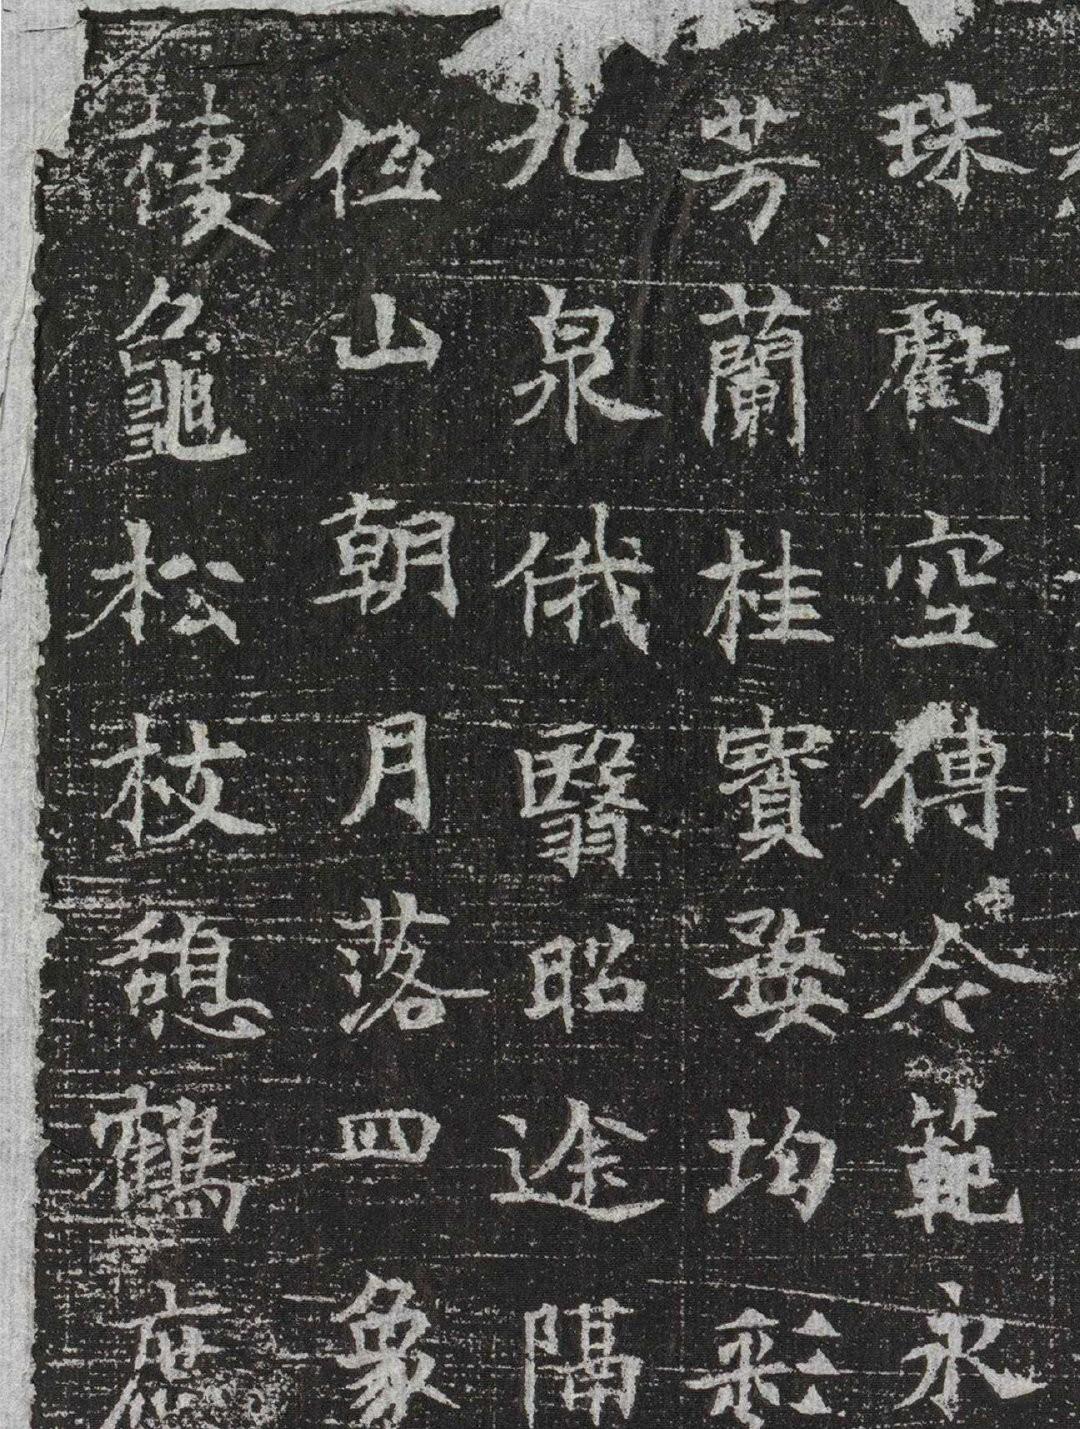 珠虧空傳令範永
芳蘭桂寶婺均彩
九泉俄翳昭途隔
山朝月落四象
龜松枝憩鶴庶